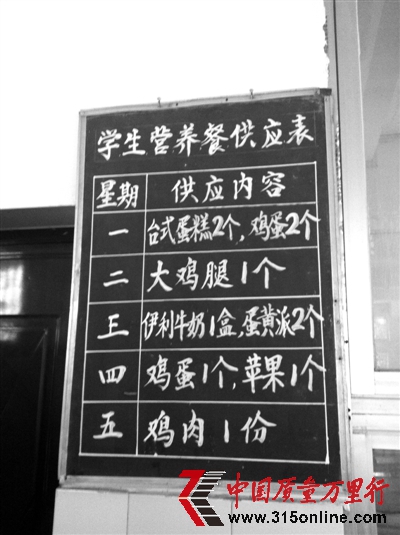 学生营养餐供应表
星期 供应内容
一 台式蛋糕2个,鸡蛋2个
二 大鸡腿1个
三 伊利牛奶1盒,蛋黄派2个
四 鸡蛋1个,苹果1个
五 鸡肉1份
中国质量万里行
www.315online.com